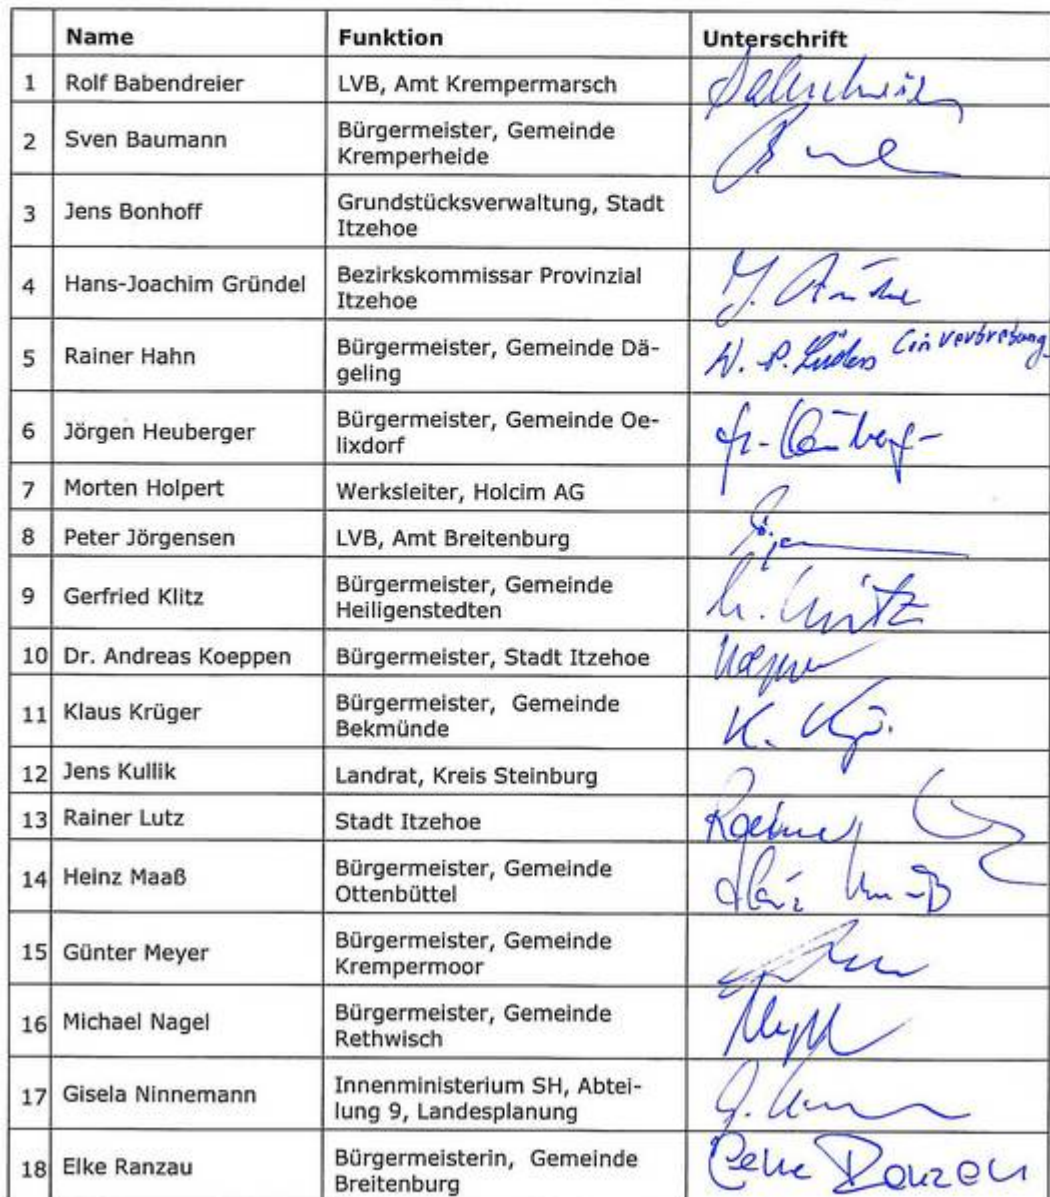 Name Funktion Unterschrift
1 Rolf Babendreier LVB, Amt Krempermarsch
2 Sven Baumann Bürgermeister, Gemeinde
Kremperheide
3 Jens Bonhoff Grundstücksverwaltung, Stadt
Itzehoe
4 Hans-Joachim Gründel Bezirkskommissar Provinzial
Itzehoe
5 Rainer Hahn Bürgermeister, Gemeinde Dä-
geling
6 Jörgen Heuberger Bürgermeister, Gemeinde Oe-
lixdorf
7 Morten Holpert Werksleiter, Holcim AG
8 Peter Jörgensen LVB, Amt Breitenburg
9 Gerfried Klitz Bürgermeister, Gemeinde
Heiligenstedten
10 Dr. Andreas Koeppen Bürgermeister, Stadt Itzehoe
11 Klaus Krüger Bürgermeister, Gemeinde
Bekmünde
12 Jens Kullik Landrat, Kreis Steinburg
13 Rainer Lutz Stadt Itzehoe
14 Heinz Maaß Bürgermeister, Gemeinde
Ottenbüttel
15 Günter Meyer Bürgermeister, Gemeinde
Krempermoor
16 Michael Nagel Bürgermeister, Gemeinde
Rethwisch
17 Gisela Ninnemann Innenministerium SH, Abtei-
lung 9, Landesplanung
18 Elke Ranzau Bürgermeisterin, Gemeinde
Breitenburg